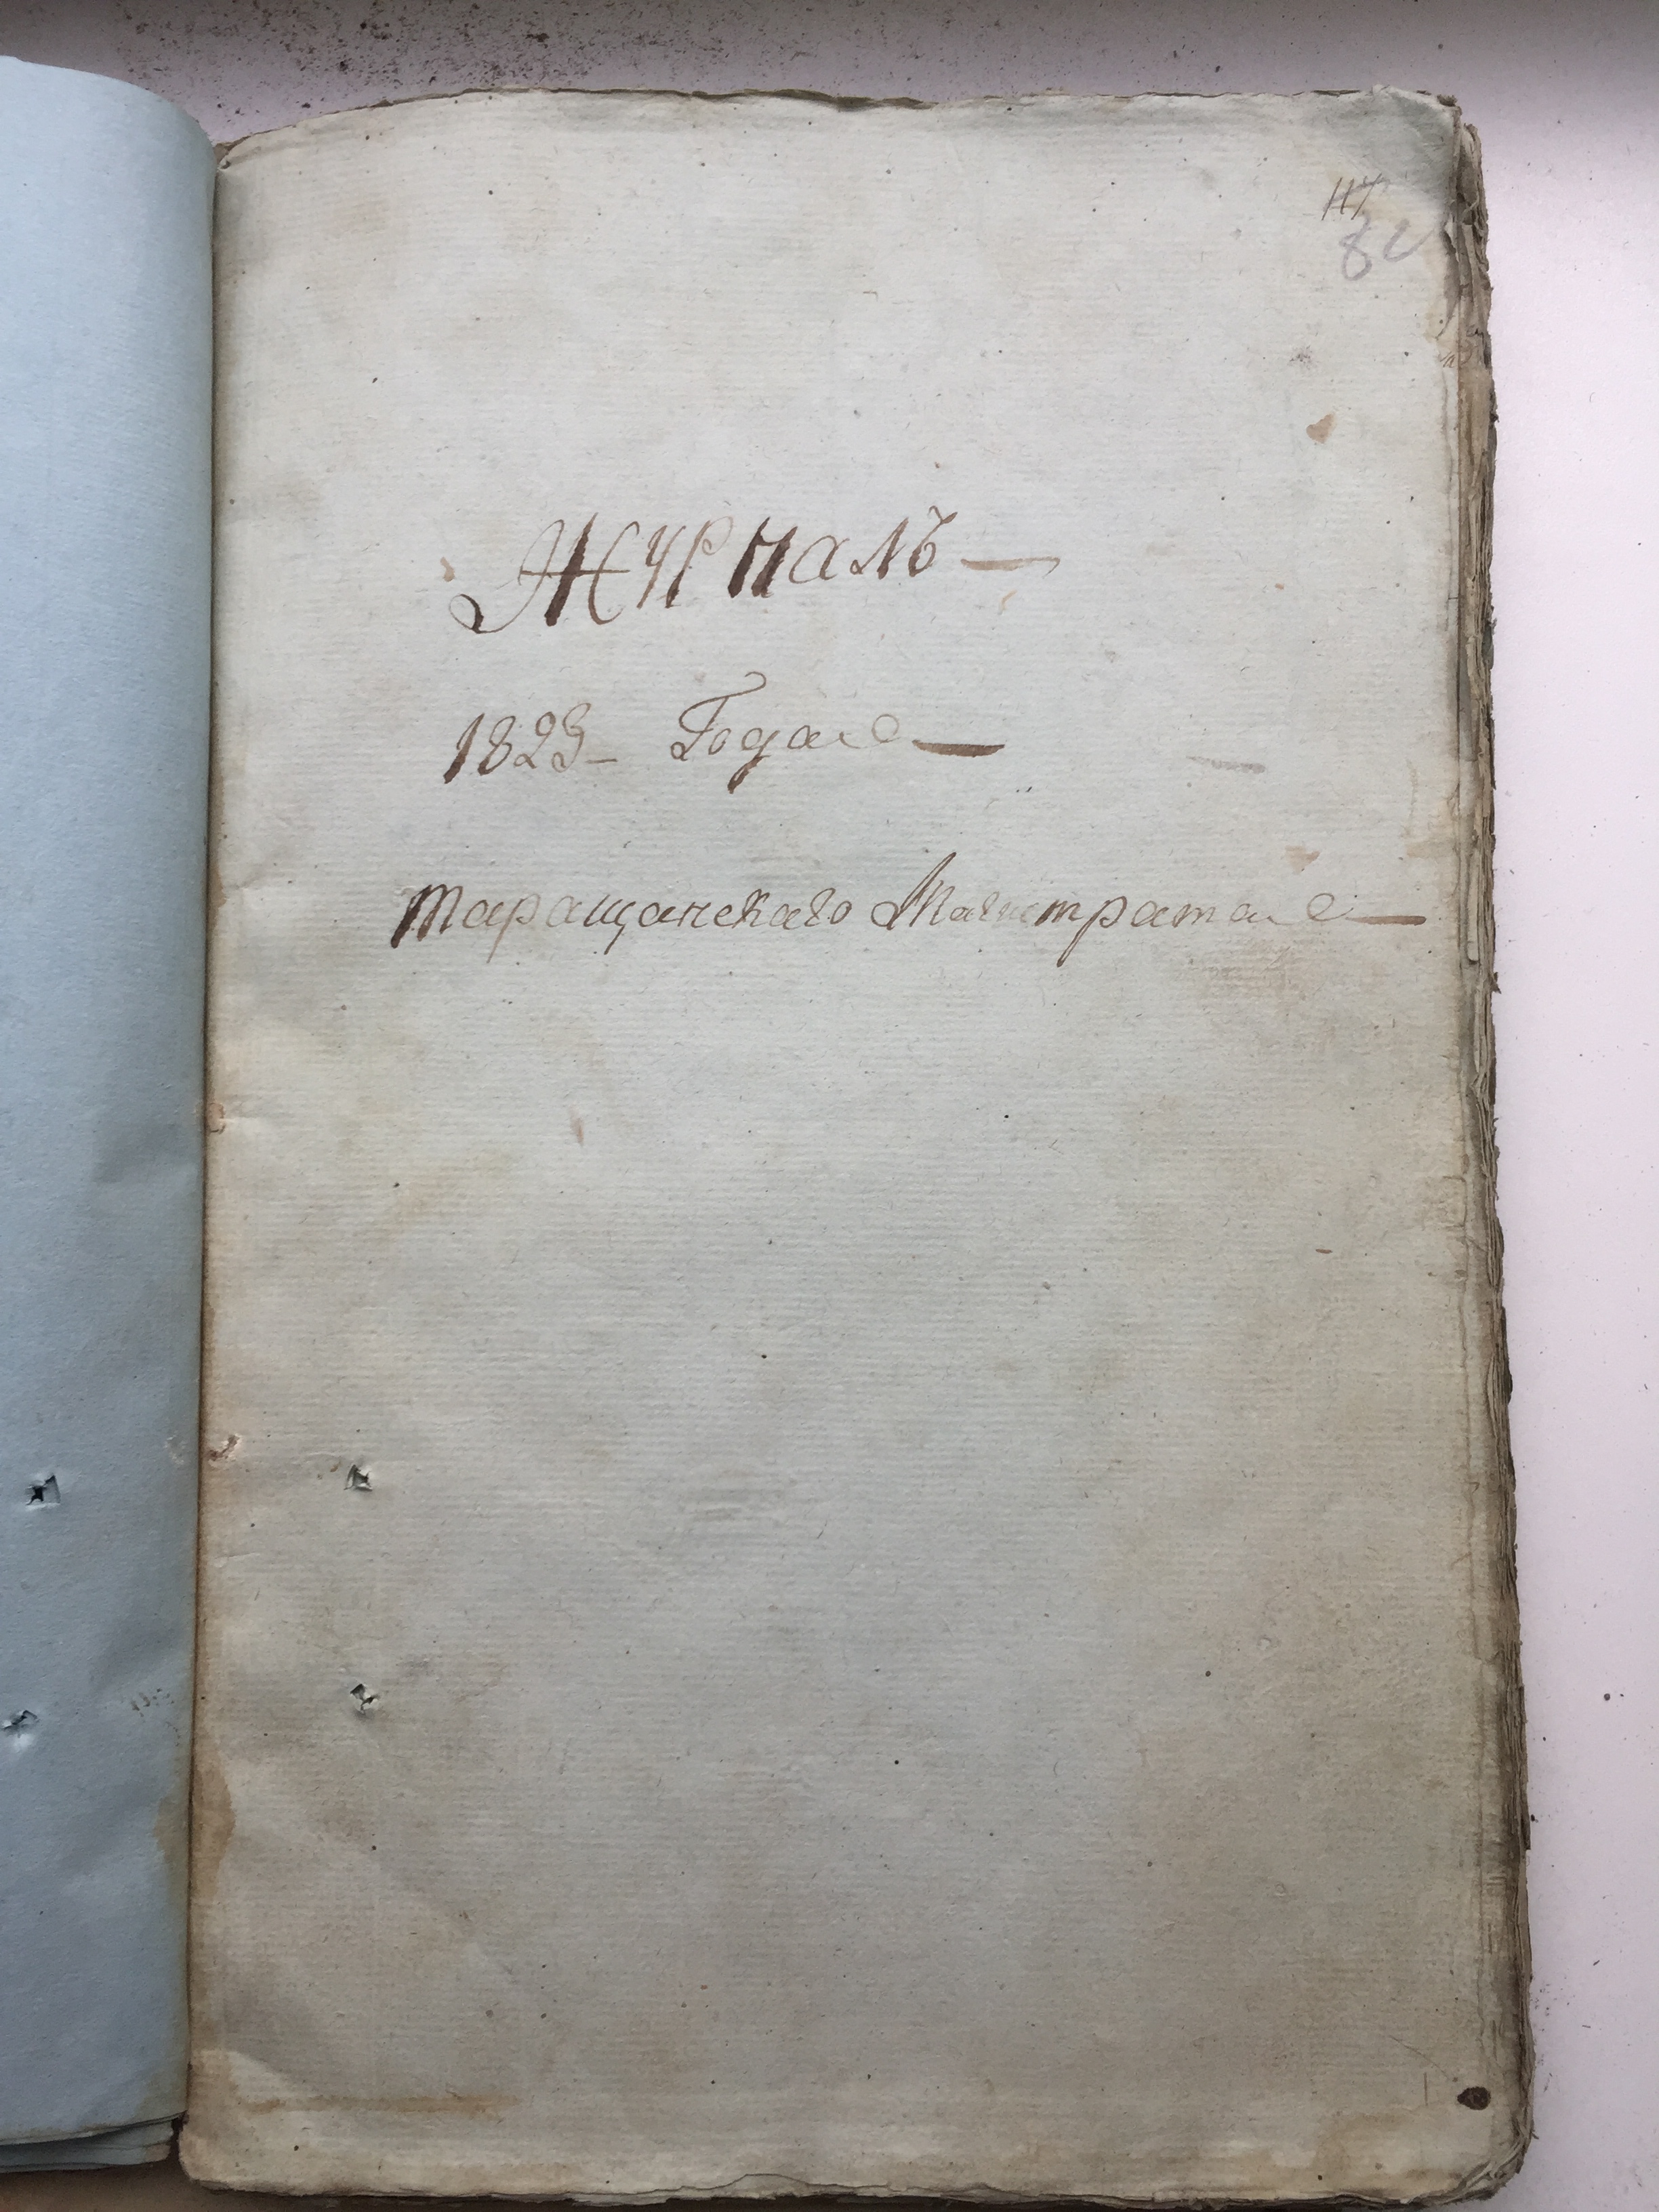 Журналъ
1823 Года
Таращанскаго Магистрата